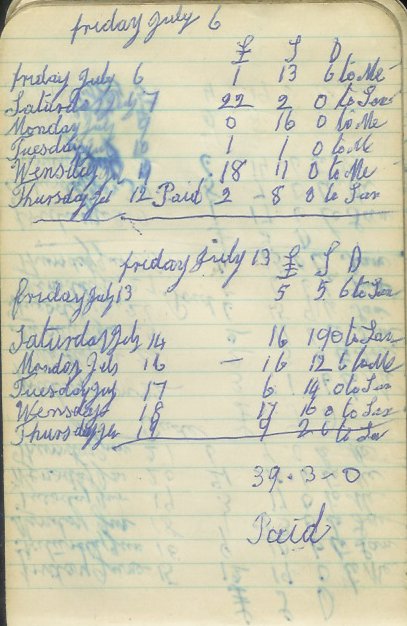 friday July 6
£ S D
friday July 6 1 13 6 to Me
Saturda July 7 22 2 0 to Sax
Monday July 9 0 16 0 to Me
Tuesday July 10 1 1 0 to Me
Wensday 11 18 11 0 to Me
Thursday Jul 12 Paid 2 - 8 0 to Sax
friday July 13 £ S D
friday July 13 5 5 6 to Sax
Saturday July 14 16 19 0 to Sax
Monday July 16 - 16 12 6 to Me
Tuesday July 17 6 14 0 to Sax
Wensday 18 17 16 0 to Sax
Thursday Jul 19 9 2 0 to Sax
39 . 3 - 0
Paid